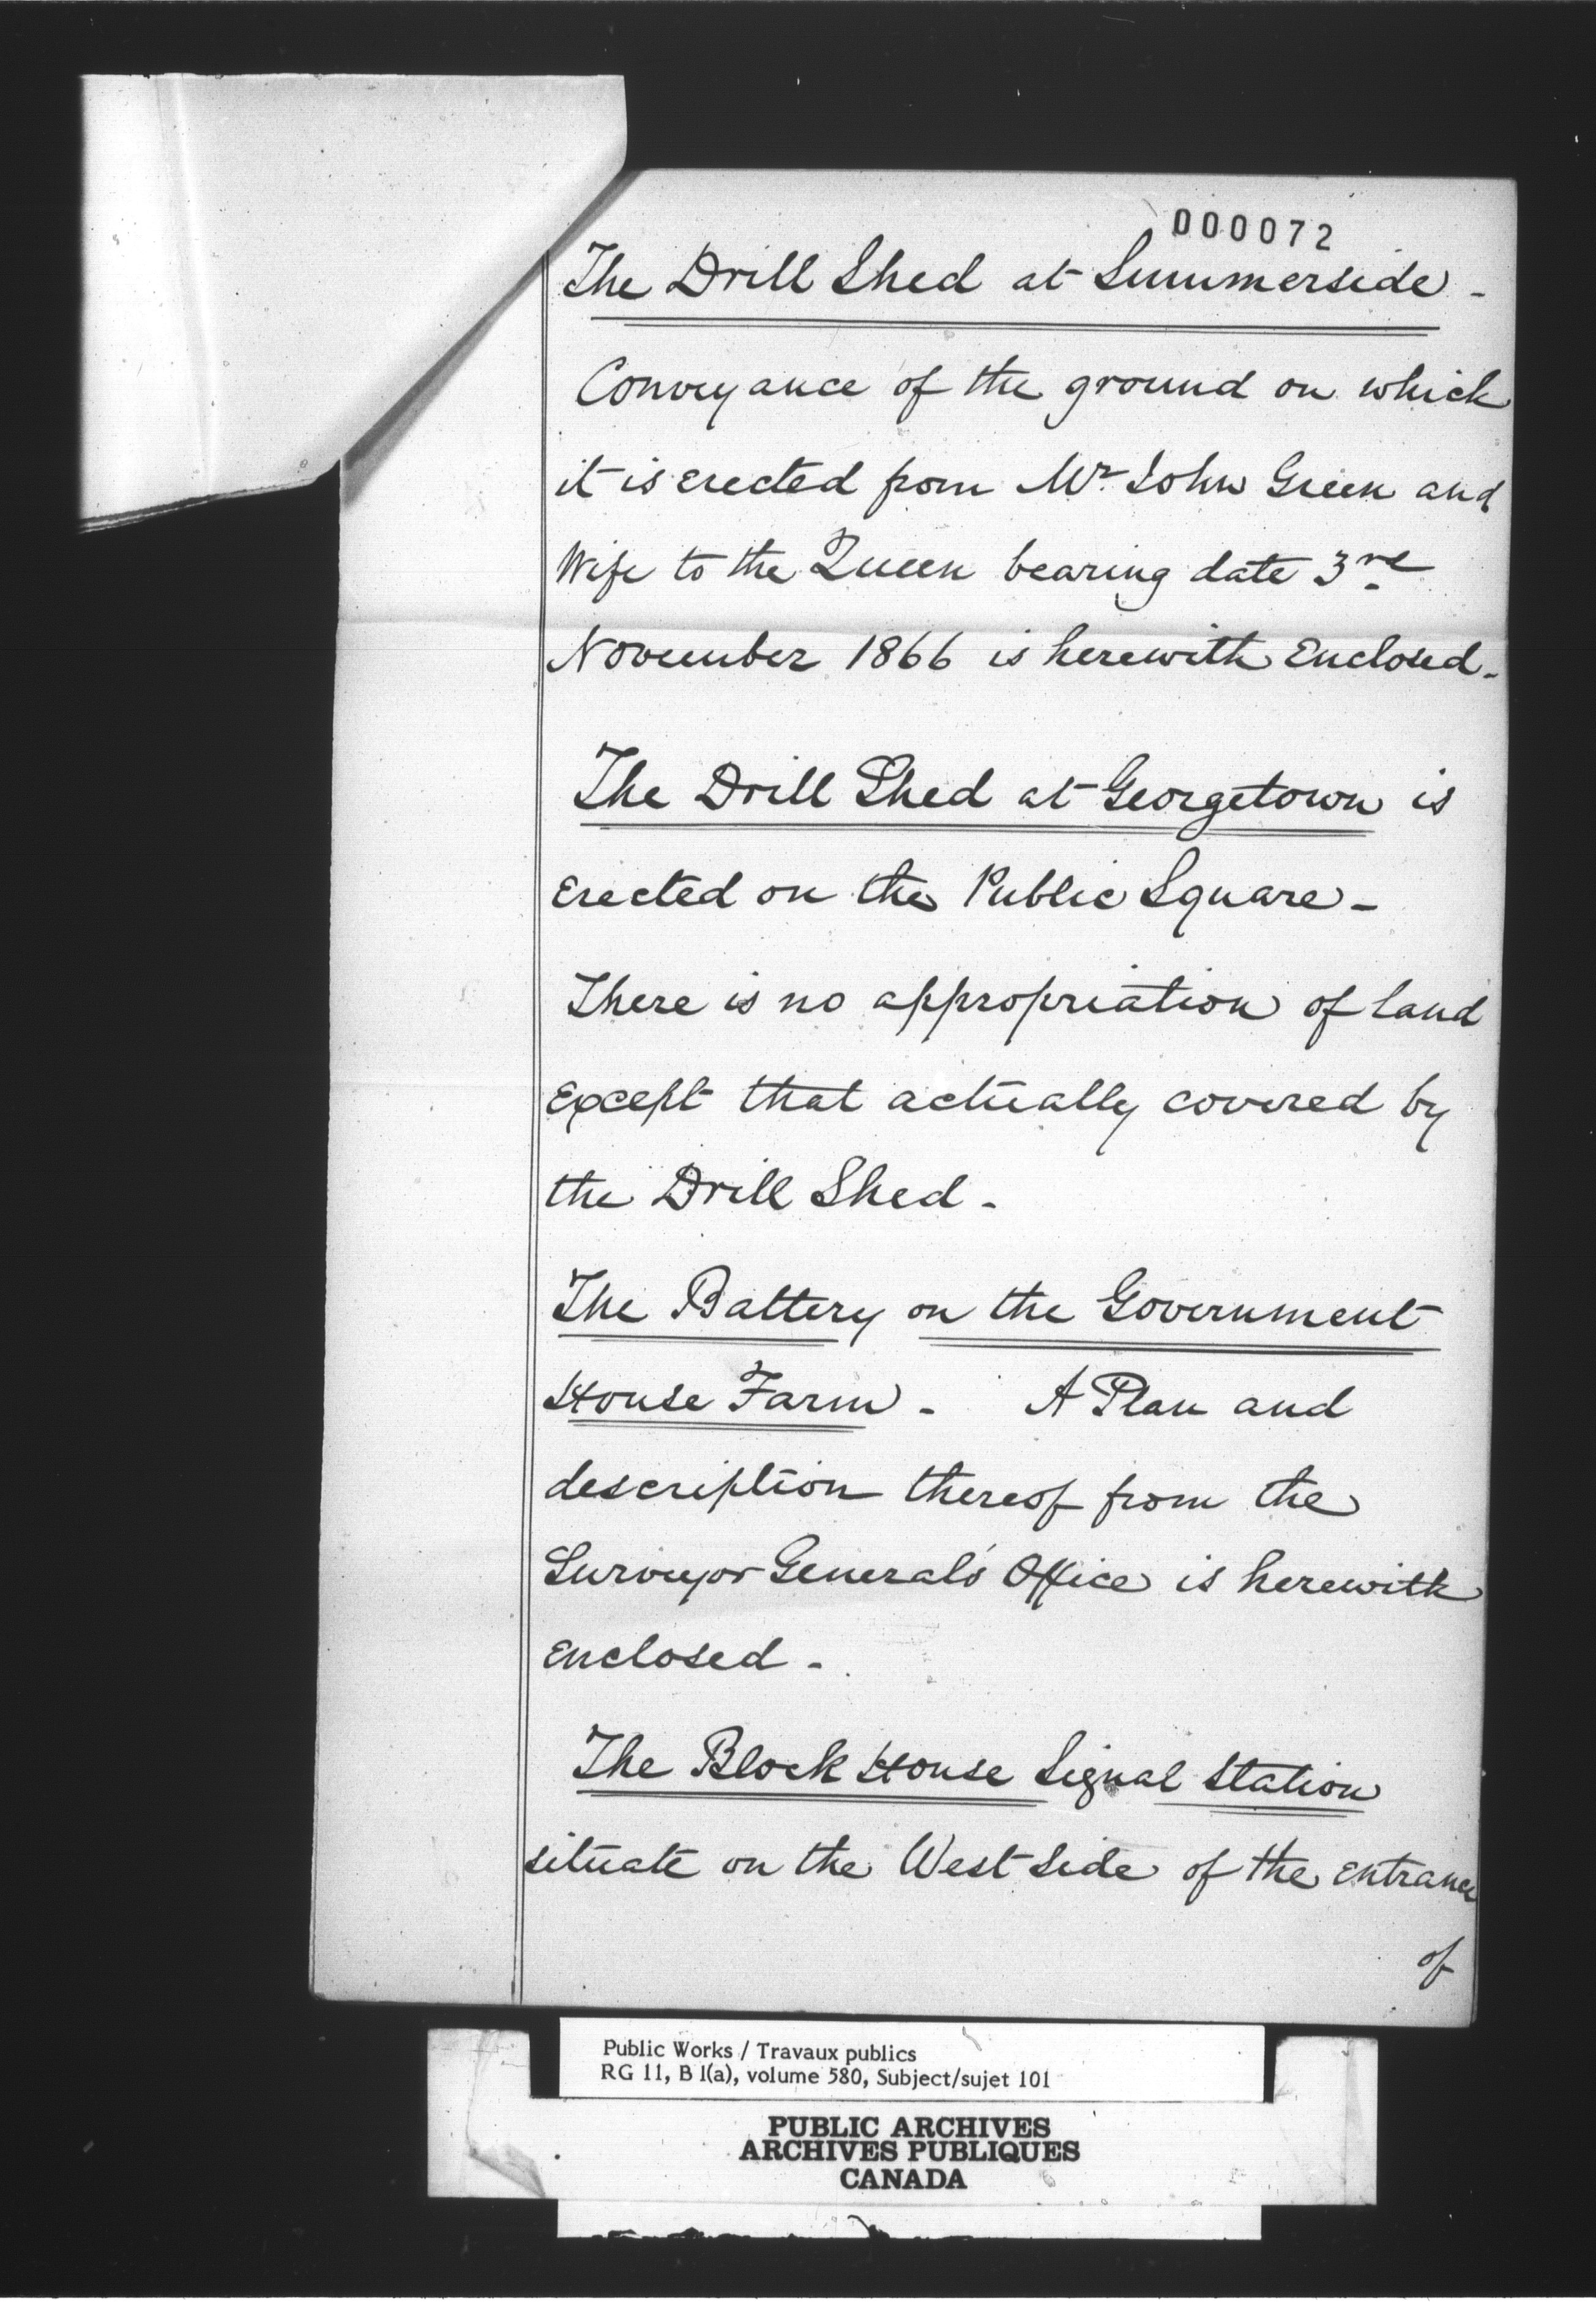 000072
The Drill Shed at Summerside -
Conveyance of the ground on which
it is erected from Mr. John Green and
Wife to the Queen bearing date 3rd
November 1866 is herewith Enclosed -
The Drill Shed at Georgetown is
Erected on the Public Square -
There is no appropriation of land
Except that actually covered by
the Drill Shed -
The Battery on the Government
House Farm - A Plan and
description thereof from the
Surveyor General's Office is herewith
Enclosed -
The Block House Signal Station
situate on the West side of the entrance
of
Public Works / Travaux publics
RG 11, B 1(a), volume 580, Subject/sujet 101
PUBLIC ARCHIVES
ARCHIVES PUBLIQUES
CANADA